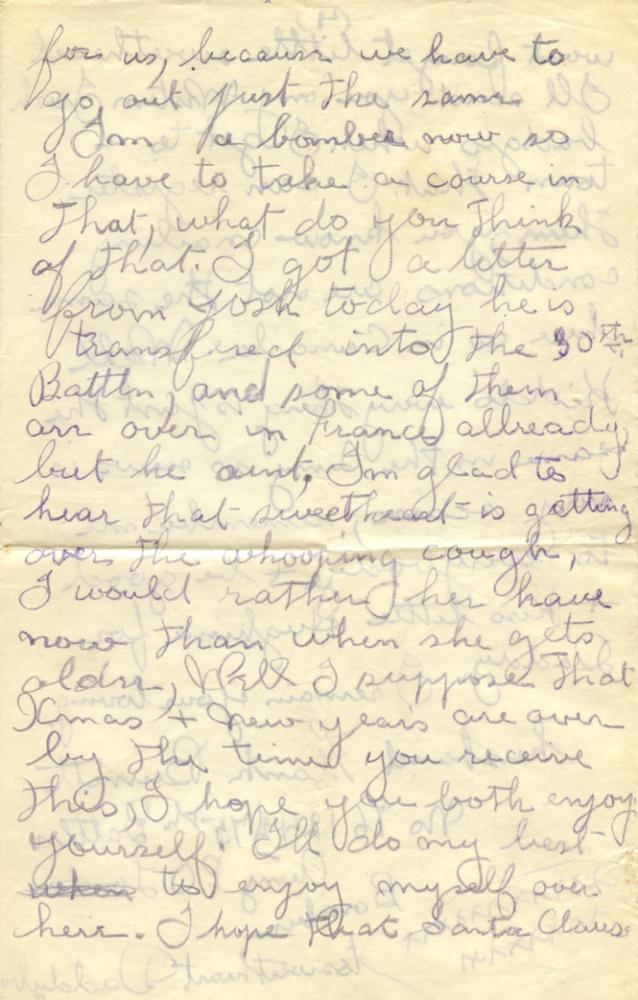 for us, because we have to
go, out just the same
I'm a bomber now so
I have to take a course in
that, what do you think
of that. I got a letter
from Josh today he is
transfered into the 30th
Battln, and some of them
are over in france allready
but he aint, I'm glad to
hear that sweetheart is getting
over the whooping cough,
I would rather her have
now than when she gets
older, Well I suppose that
Xmas + New years are over
by the time you receive
this, I hope you both enjoy
yourself. I'll do my best
when to enjoy myself over
here. I hope that Santa Claus